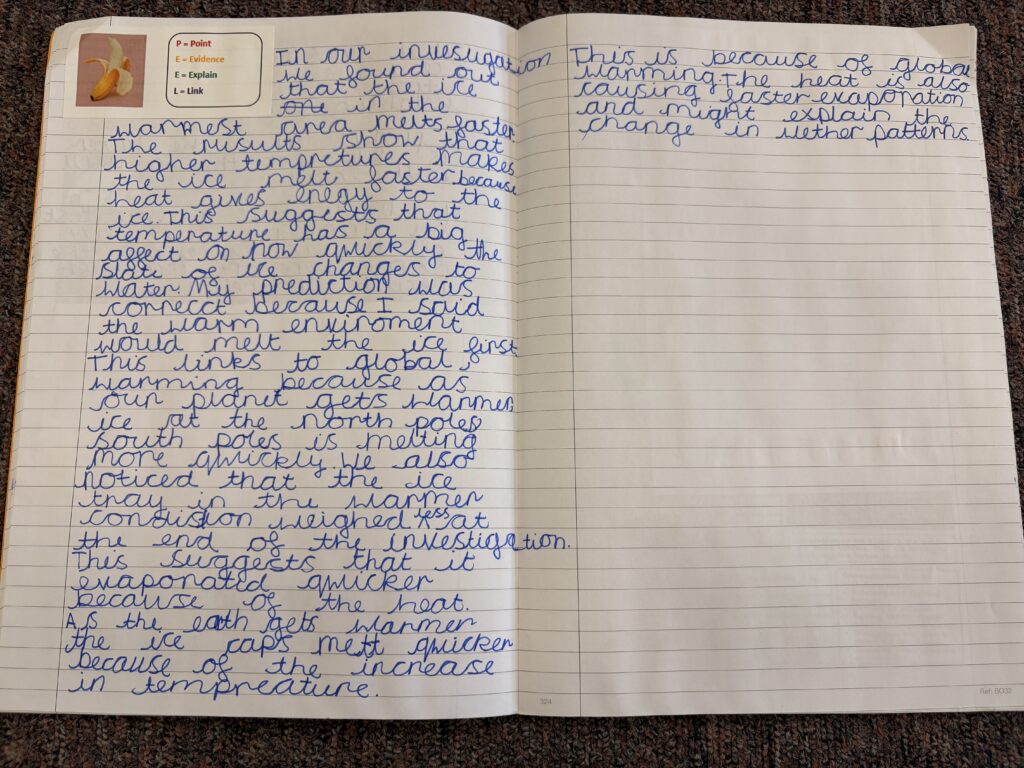 P = Point
E = Evidence
E = Explain
L = Link
In our investigation
we found out
that the ice
one in the
warmest area melts faster.
The rusults show that
higher tempretures makes
the ice melt faster because
heat gives enegy to the
ice. This suggests that
temperature has a big
affect on how quickly the
state of ice changes to
water. My prediction was
correcct because I said
the warm enviroment
would melt the ice first.
This links to global
warming because as
our planet gets warmer,
ice at the north poles
south poles is melting
more quickly. We also
noticed that the ice
tray in the warmer
condision weighed less at
the end of the investigation.
This suggests that it
evaporated quicker
because of the heat.
As the eath gets warmer
the ice caps melt quicker
because of the increase
in tempreature.
324
This is because of global
warming. The heat is also
causing faster evaporation
and might explain the
change in wether patterns
Ref: BO32